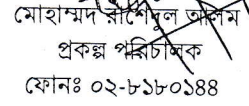 মোহাম্মদ রাশেদুল আলম
প্রকল্প পরিচালক
ফোনঃ ০২-৮১৮০১৪৪